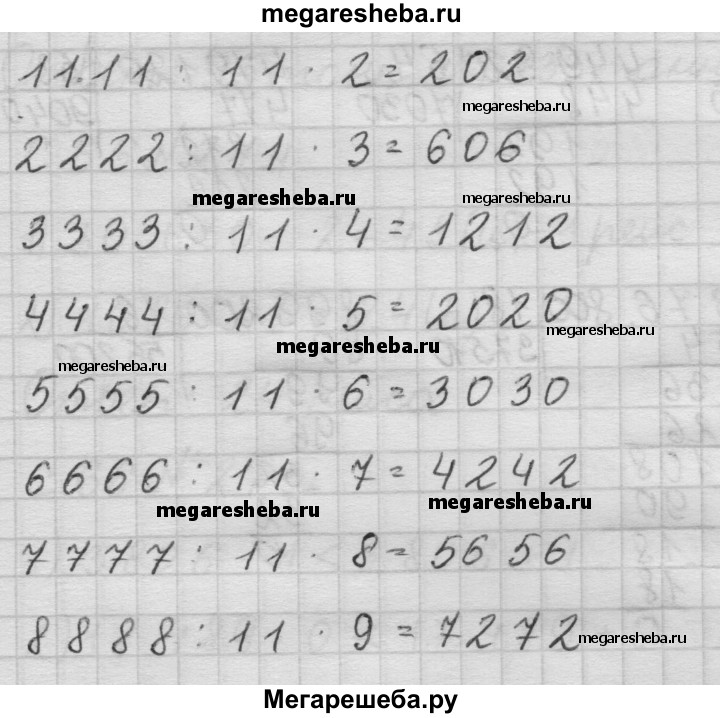 megaresheba.ru
1111 : 11 · 2 = 202
megaresheba.ru
2222 : 11 · 3 = 606
megaresheba.ru megaresheba.ru
3333 : 11 · 4 = 1212
4444 : 11 · 5 = 2020
megaresheba.ru
megaresheba.ru
megaresheba.ru
5555 : 11 · 6 = 3030
6666 : 11 · 7 = 4242
megaresheba.ru megaresheba.ru
7777 : 11 · 8 = 5656
8888 : 11 · 9 = 7272
megaresheba.ru
Мегарешеба.ру